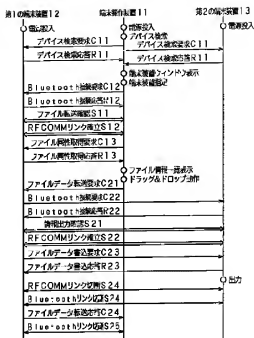 第1の端末装置12　端末操作装置11　第2の端末装置13
電源投入　電源投入　電源投入
デバイス検索
デバイス検索要求C11　デバイス検索要求C11
デバイス検索応答R11　デバイス検索応答R11
端末装置ウィンドウ表示
端末装置指定
Bluetooth接続要求C12
Bluetooth接続応答R12
ファイル転送確認S11
RFCOMMリンク確立S12
ファイル属性取得要求C13
ファイル属性取得応答R13
ファイル情報一覧表示
ドラッグ&ドロップ操作
ファイルデータ転送要求C21
Bluetooth接続要求C22
Bluetooth接続応答R22
情報出力確認S21
RFCOMMリンク確立S22
ファイルデータ書込要求C23
ファイルデータ書込応答R23
出力
RFCOMMリンク切断S24
Bluetoothリンク切断S24
ファイルデータ転送応答C24
Bluetoothリンク切断S25